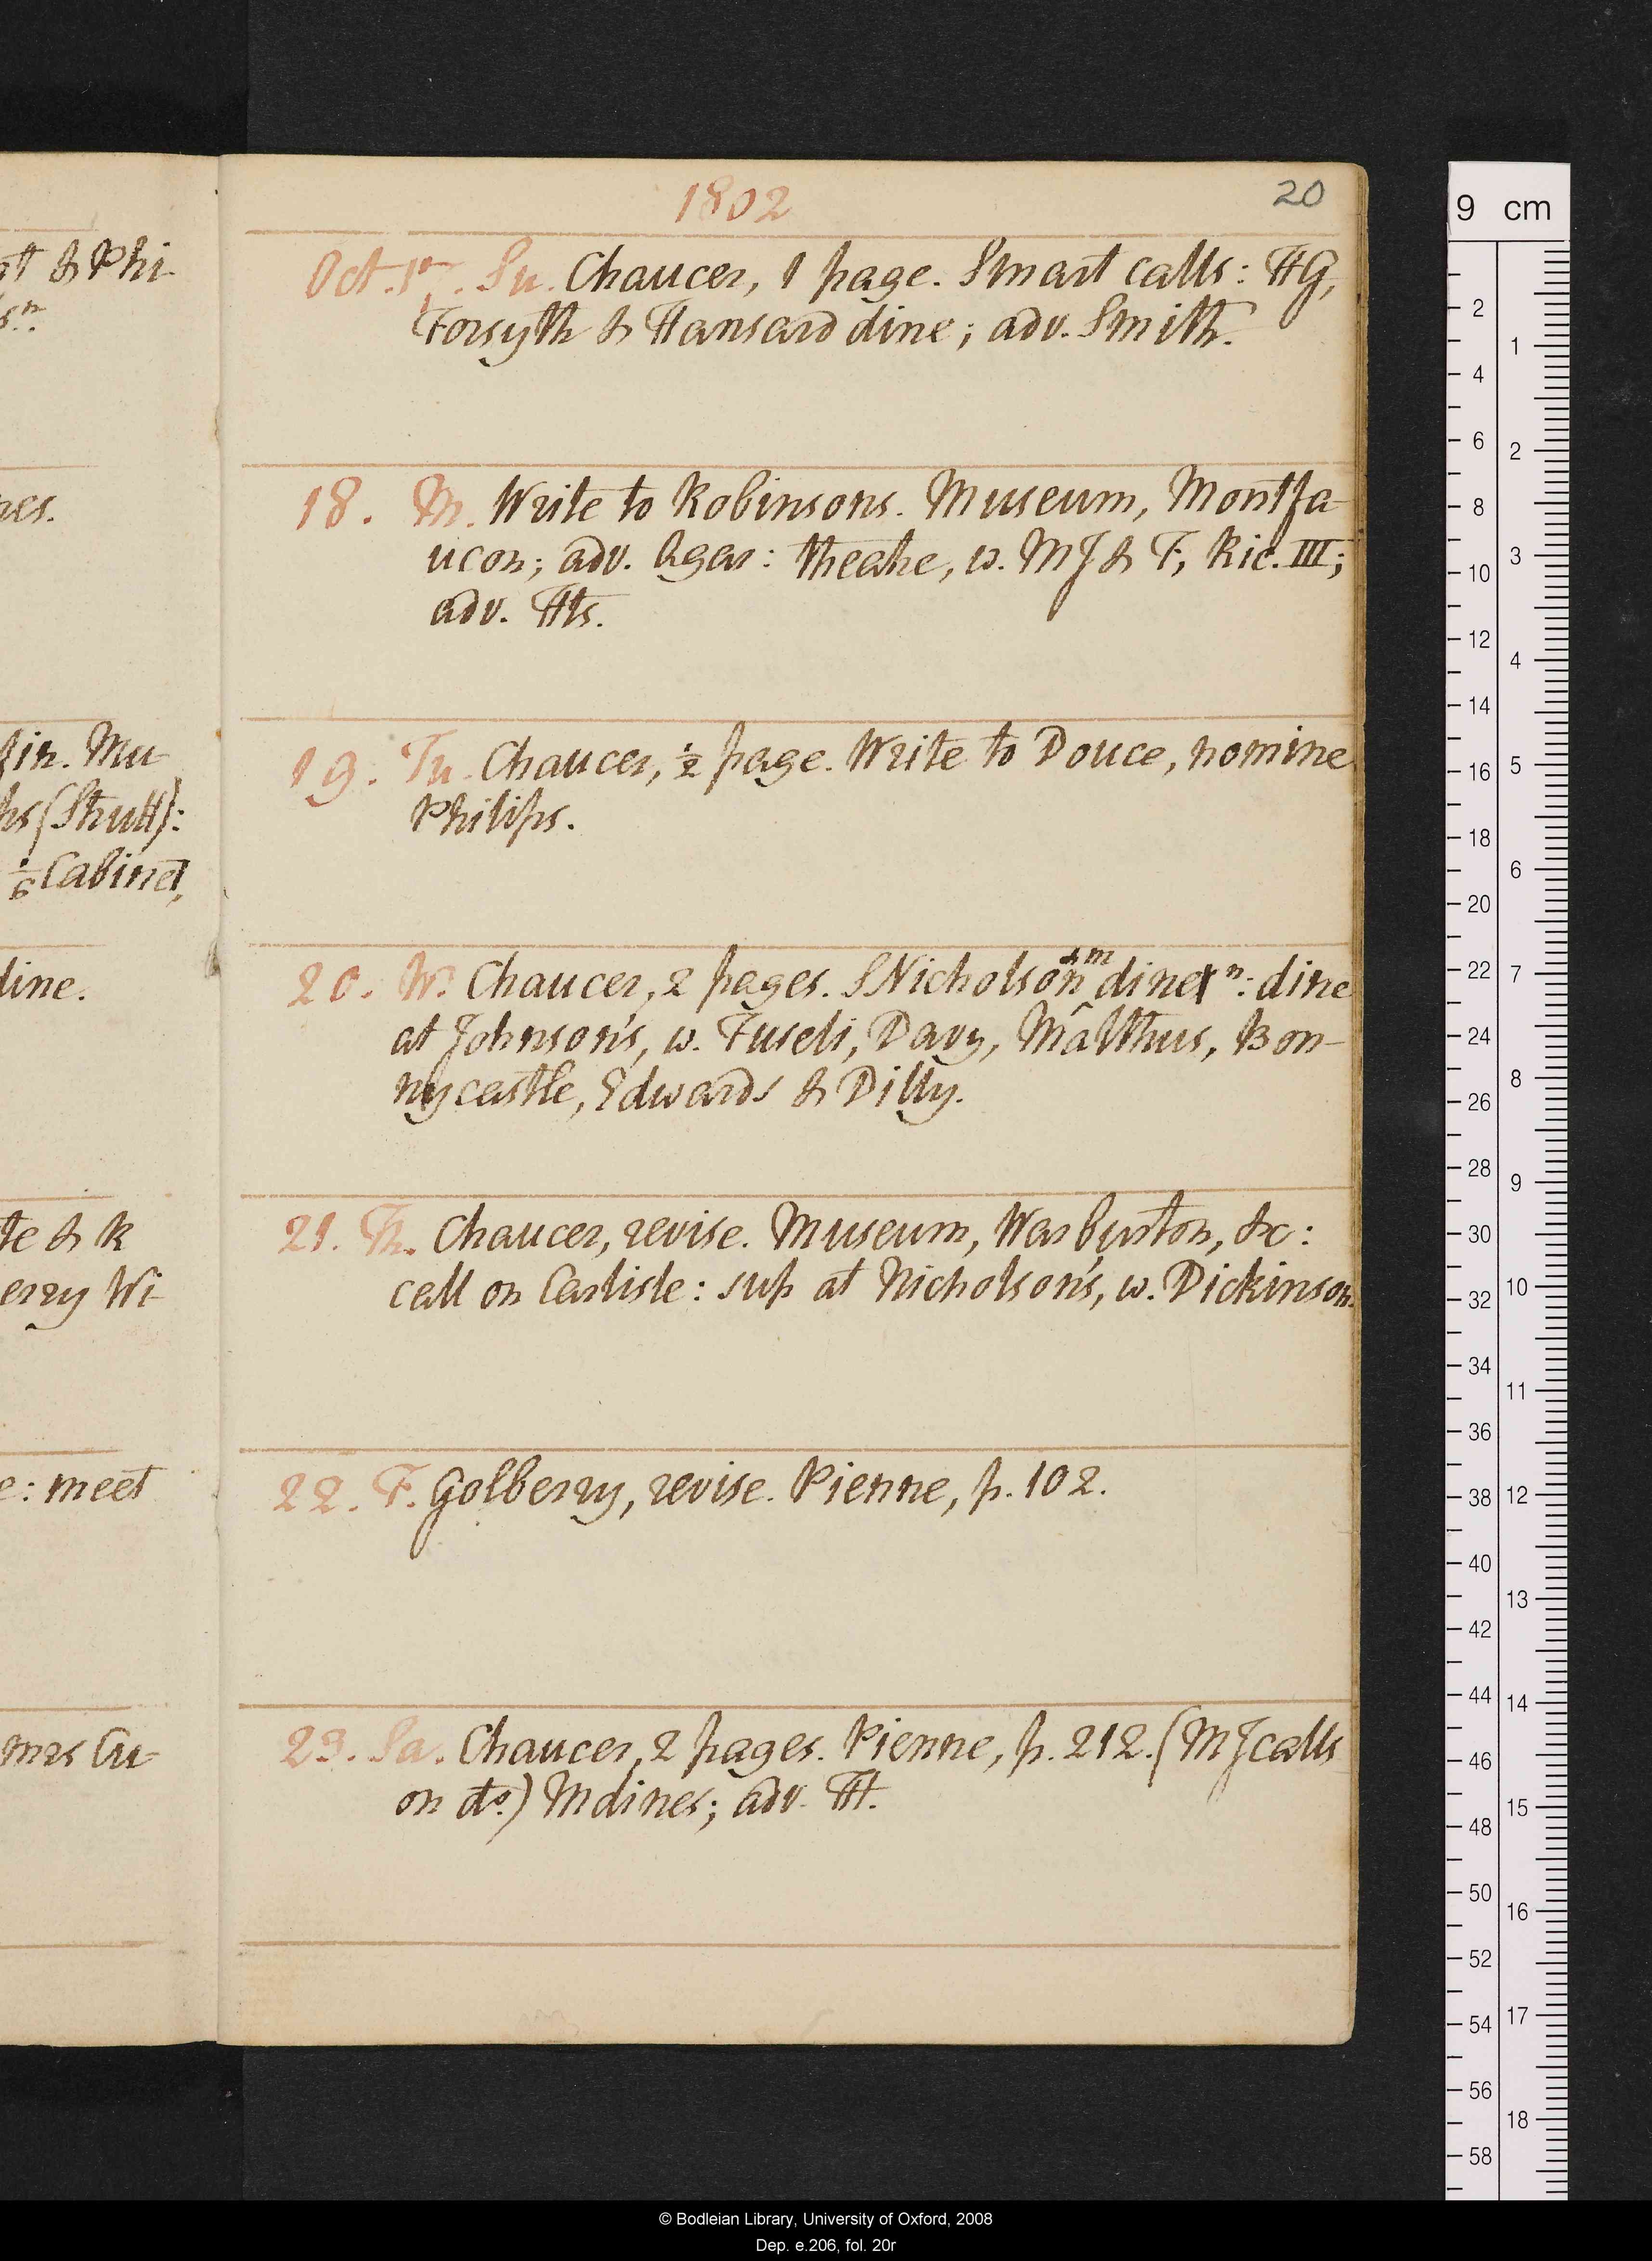 1802
20
Oct. 17. Su. Chaucer, 1 page. Smart calls: HG,
Forsyth & Hansard dine; adv. Smith.
18. M. Write to Robinsons. Museum, Montfa-
ucon; adv. Agar: theatre, w. MJ & F, Ric. III;
adv. Hts.
19. Tu. Chaucer, ½ page. Write to Douce, nomine
Philips.
20. W. Chaucer, 2 pages. SNicholson & m dine n: dine
at Johnson's, w. Fuseli, Davy, Malthus, Bon-
nycastle, Edwards & Dilly.
21. Th. Chaucer, revise. Museum, Warburton, &c:
call on Carlisle: sup at Nicholson's, w. Dickinson.
22. F. Golberry, revise. Pienne, p. 102.
23. Sa. Chaucer, 2 pages. Pienne, p. 212. (MJ calls
on do.) M dines; adv. H.
& Phi-
sn.
nes.
fin. Mu-
hs (Strutt):
1/6 Cabinet,
dine.
te & R
erry Wi-
e: meet
mrs Cu-
9 cm
2
4
6
8
10
12
14
16
18
20
22
24
26
28
30
32
34
36
38
40
42
44
46
48
50
52
54
56
58
1
2
3
4
5
6
7
8
9
10
11
12
13
14
15
16
17
18
© Bodleian Library, University of Oxford, 2008
Dep. e.206, fol. 20r